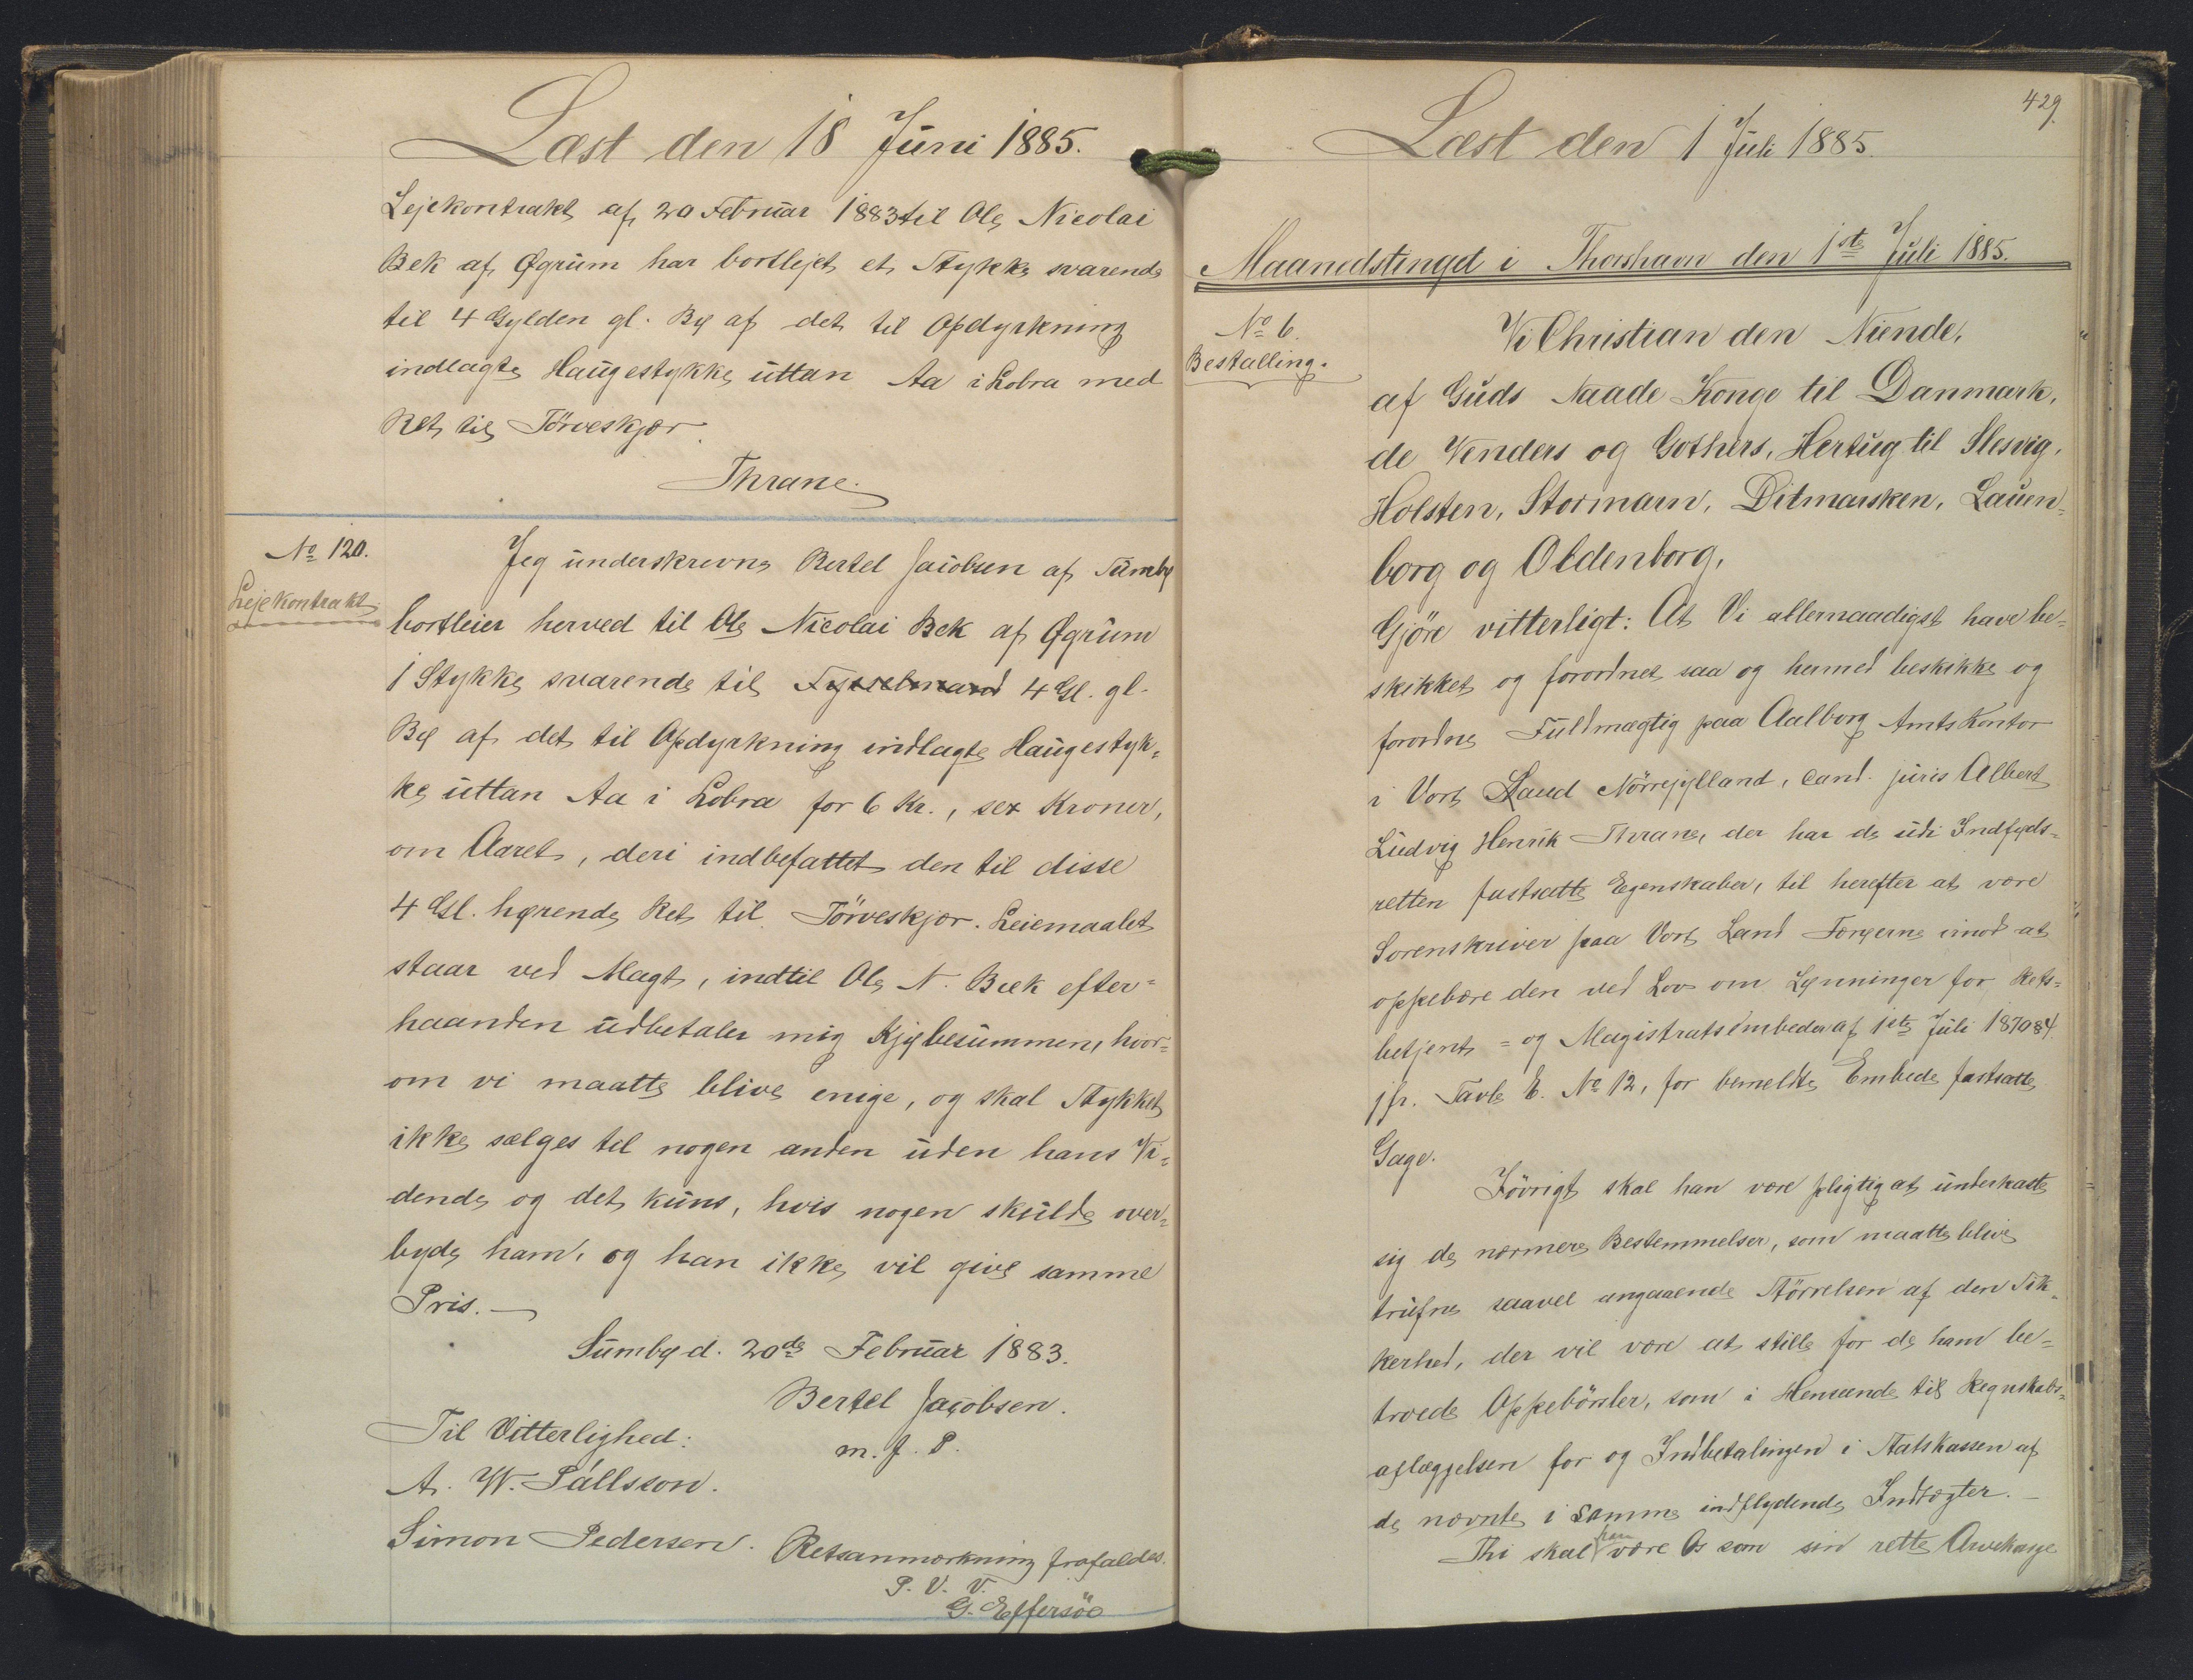 Læst den 18 Juni 1885.
Lejekontrakt af 20 Februar 1883 til Ole Nicolai
Bek af Øgrum har bortlejet et Stykke svarende
til 4 Gylden gl. By af det til Opdyrkning
indlagte Haugestykke uttan Aa i Lobra med
Ret til Törveskjær.
Thrane.
No 120.
Lejekontrakt
Jeg underskrevne Bertel Jacobsen af Sumbø
bortleier herved til Ole Nicolai Bek af Øgrum
1 Stykke svarende til Sysselmand 4 Gl. gl.
By af det til Opdyrkning indlagte Haugestyk=
ke uttan Aa i Lobra for 6 Kr., sex Kroner,
om Aaret, deri indbefattet den til disse
4 Gl. hørende Ret til Törveskjær. Leiemaalet
staar ved Magt, indtil Ole N. Bæk efter=
haanden udbetaler mig Kjøbesummen, hvor=
om vi maatte blive enige, og skal Stykket
ikke sælges til nogen anden uden hans Vi=
dende og det kuns, hvis nogen skulde over=
byde ham, og han ikke vil give samme
Pris. —
Sumbø d. 20de Februar 1883.
Bertel Jacobsen.
Til Vitterlighed:
m. f. P.
A. W. Pállsson.
Simon Pedersen.
Retsanmærkning frafaldes.
P. V. V.
G. Effersöe
429
Læst den 1 Juli 1885.
Maanedstinget i Thorshavn den 1ste Juli 1885.
No 6.
Bestalling.
Vi Christian den Niende,
af Guds Naade Konge til Danmark,
de Venders og Gothers, Hertug til Slesvig,
Holsten, Stormarn, Ditmarsken, Lauen=
borg og Oldenborg,
Gjöre vitterligt: At Vi allernaadigst have be=
skikket og forordnet saa og hermed beskikke og
forordne Fuldmægtig paa Aalborg Amtskontor
i Vort Land Nörrejylland, cand. juris Albert
Ludvig Henrik Thrane, der har de udi Indføds=
retten fastsatte Egenskaber, til herefter at være
Sorenskriver paa Vort Land Færøerne imod at
oppebære den ved Lov om Lønninger for Rets=
betjent= og Magistratsembeder af 1ste Juli 1870 §4
jfr. Tavle E. No 12, for bemeldte Embede fastsatte
Gage.
Iövrigt skal han være pligtig at underkaste
sig de nærmere Bestemmelser, som maatte blive
trufne saavel angaaende Störrelsen af den Sik=
kerhed, der vil være at stille for de ham be=
troede Oppebörsler, som i Henseende til Regnskabs=
aflæggelsen for og Indbetalingen i Statskassen af
de nævnte i samme indflydende Indtægter. —
Thi skal han være Os som sin rette Arvekonge